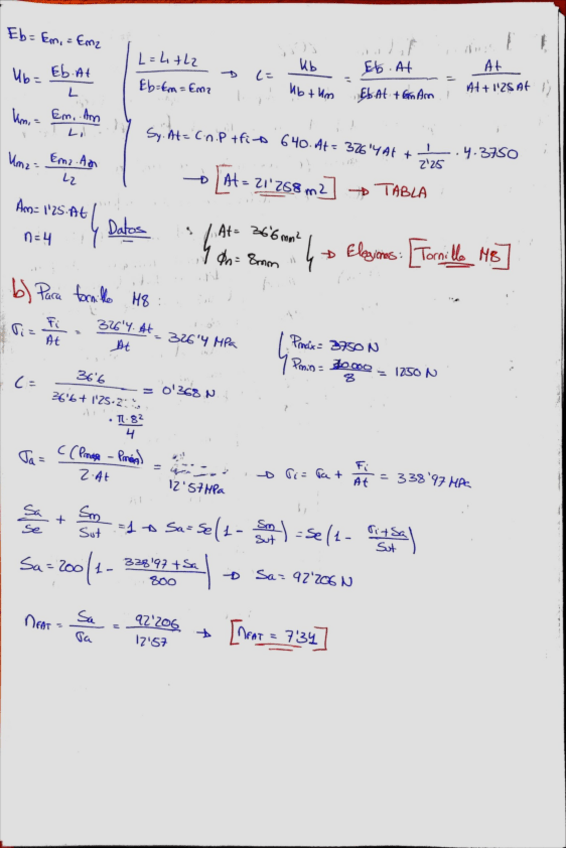 Eb = Em₁ = Em₂
Kb = Eb·At / L
Km₁ = Em₁·Am / L₁
Km₂ = Em₂·Am / L₂
L = L₁ + L₂
Eb = Em = Em₂
→ C = Kb / (Kb + Km) = Eb·At / (Eb At + Em Am) = At / (At + 1'25 At)
Sy·At = C·n·P + Fi → 640·At = 326'4 At + 1/2'25 · 4·3750
→ [At = 21'258 m2] → TABLA
Am = 1'25·At
n = 4
Datos
At = 36'6 mm²
Øn = 8mm
→ Elegimos: [Tornillo M8]
b) Para tornillo M8:
σi = Fi / At = 326'4·At / At = 326'4 MPa
Pmáx = 3750 N
Pmin = 10.000 / 8 = 1250 N
C = 36'6 / (36'6 + 1'25·2 · π·8² / 4) = 0'368 N
σa = C (Pmax − Pmín) / 2·At = 12'57 MPa → σi = σa + Fi / At = 338'97 MPa
Sa / Se + Sm / Sut = 1 → Sa = Se (1 − Sm / Sut) = Se (1 − (σi + Sa) / Sut)
Sa = 200 (1 − (338'97 + Sa) / 800) → Sa = 92'206 N
nFAT = Sa / σa = 92'206 / 12'57 → [nFAT = 7'34]